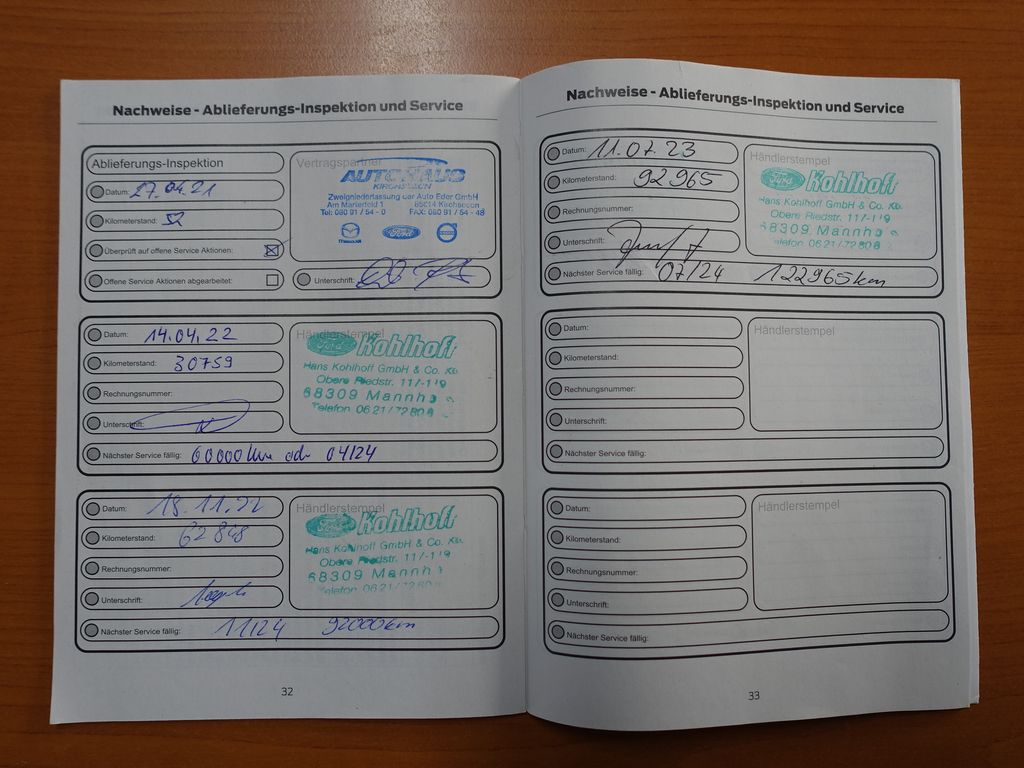 Nachweise - Ablieferungs-Inspektion und Service
Ablieferungs-Inspektion
Datum: 27.04.21
Kilometerstand: 52
Überprüft auf offene Service Aktionen:
Offene Service Aktionen abgearbeitet:
Vertragspartner
AUTOHAUS
KIRCHSEEON
Zweigniederlassung der Auto Eder GmbH
Am Marterfeld 1 85614 Kirchseeon
Tel: 080 91 / 54 - 0 FAX: 080 91 / 54 - 48
mazda Ford VOLVO
Unterschrift:
Datum: 14.04.22
Kilometerstand: 30759
Rechnungsnummer:
Unterschrift:
Nächster Service fällig: 60000km od. 04/24
Händlerstempel
Ford Kohlhoff
Hans Kohlhoff GmbH & Co. KG
Obere Riedstr. 117-119
68309 Mannh
Telefon 0621/72808
Datum: 18.11.22
Kilometerstand: 62848
Rechnungsnummer:
Unterschrift:
Nächster Service fällig: 11/24 92000km
Händlerstempel
Ford Kohlhoff
Hans Kohlhoff GmbH & Co. KG
Obere Riedstr. 117-119
68309 Mannh
Telefon 0621/72808
32
Nachweise - Ablieferungs-Inspektion und Service
Datum: 11.07.23
Kilometerstand: 92965
Rechnungsnummer:
Unterschrift:
Nächster Service fällig: 07/24 122965km
Händlerstempel
Ford Kohlhoff
Hans Kohlhoff GmbH & Co. KG
Obere Riedstr. 117-119
68309 Mannh
Telefon 0621/72808
Datum:
Kilometerstand:
Rechnungsnummer:
Unterschrift:
Nächster Service fällig:
Händlerstempel
Datum:
Kilometerstand:
Rechnungsnummer:
Unterschrift:
Nächster Service fällig:
Händlerstempel
33